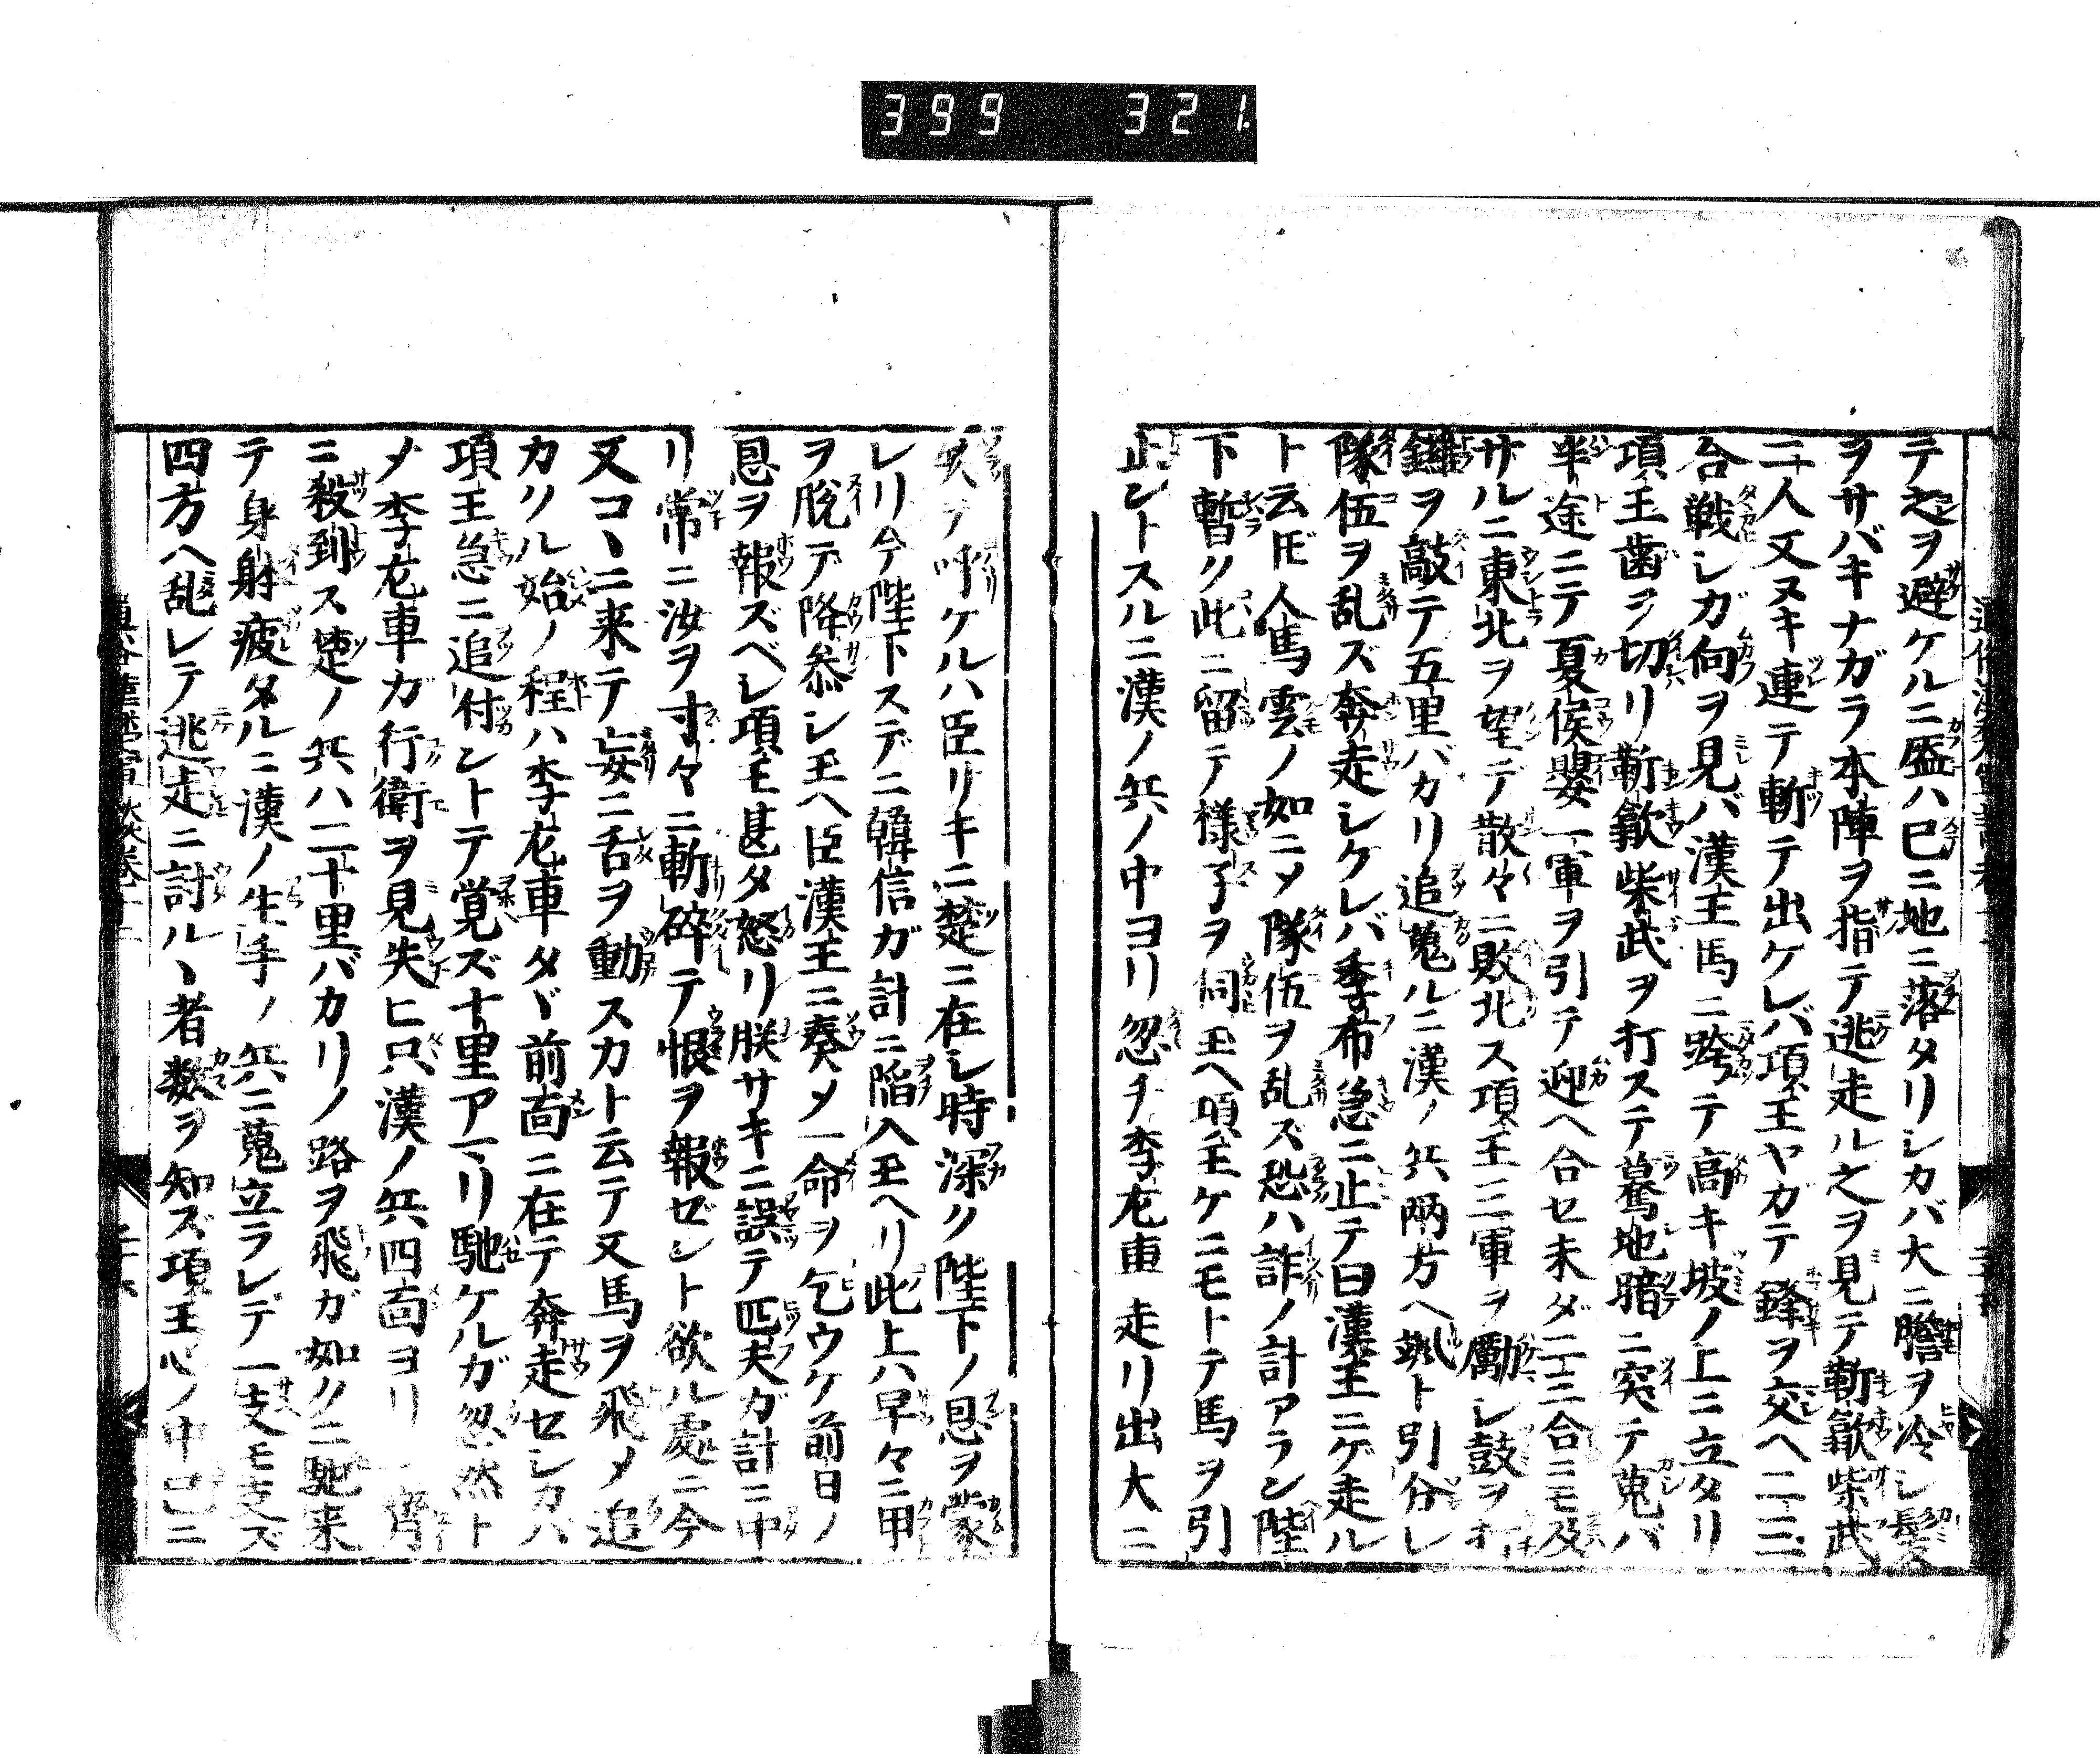 399 321
テ之ヲ避ケルニ盔ハ已ニ地ニ落タリシカバ大ニ膽ヲ冷シ髪
ヲサバキナガラ本陣ヲ指テ逃走ル之ヲ見テ靳歙柴武
二人又ヌキ連テ斬テ出ケレバ項王ヤガテ鋒ヲ交ヘ二三
合戦シガ向ヲ見バ漢王馬ニ跨テ高キ坡ノ上ニ立タリ
項王歯ヲ切リ靳歙柴武ヲ打ステ驀地暗ニ突テ蒐バ
半途ニテ夏侯嬰一軍ヲ引テ迎ヘ合セ未ダ二三合ニモ及
サルニ東北ヲ望テ散々ニ敗北ス項王三軍ヲ勵シ鼓ヲ打
鑼ヲ敲テ五里バカリ追蒐ルニ漢ノ兵両方ヘ颯ト引分レ
隊伍ヲ乱ズ奔走シケレバ季布急ニ止テ曰漢王ニゲ走ル
ト云𪜈人馬雲ノ如ニメ隊伍ヲ乱ズ恐ハ詐ノ計アラン陛
下暫ク此ニ留テ様子ヲ伺玉ヘ項王ケニモトテ馬ヲ引
止ントスルニ漢ノ兵ノ中ヨリ忽チ李左車走リ出大ニ
笑テ呼ケルハ臣リキニ楚ニ在シ時深ク陛下ノ恩ヲ蒙
レリ今陛下ステニ韓信ガ計ニ陥入玉ヘリ此上ハ早々ニ甲
ヲ脱テ降参シ玉ヘ臣漢王ニ奏メ一命ヲ乞ウケ前日ノ
恩ヲ報ズベシ項王甚タ怒リ朕サキニ誤テ匹夫ガ計ニ中
リ常ニ汝ヲ寸々ニ斬碎テ恨ヲ報ゼント欲ル處ニ今
又コヽニ来テ妄ニ舌ヲ動スカト云テ又馬ヲ飛メ追
カクル始ノ程ハ李左車タヾ前面ニ在テ奔走セシカバ
項王急ニ追付ントテ覚ズ十里アマリ馳ケルガ忽然ト
メ李左車ガ行衛ヲ見失ヒ只漢ノ兵四面ヨリ一齊
ニ殺到ス楚ノ兵ハ二十里バカリノ路ヲ飛ガ如クニ馳来
テ身躰疲タルニ漢ノ生手ノ兵ニ蒐立ラレテ一支モ支ズ
四方ヘ乱レテ逃走ニ討ルヽ者数ヲ知ズ項王心ノ中已ニ